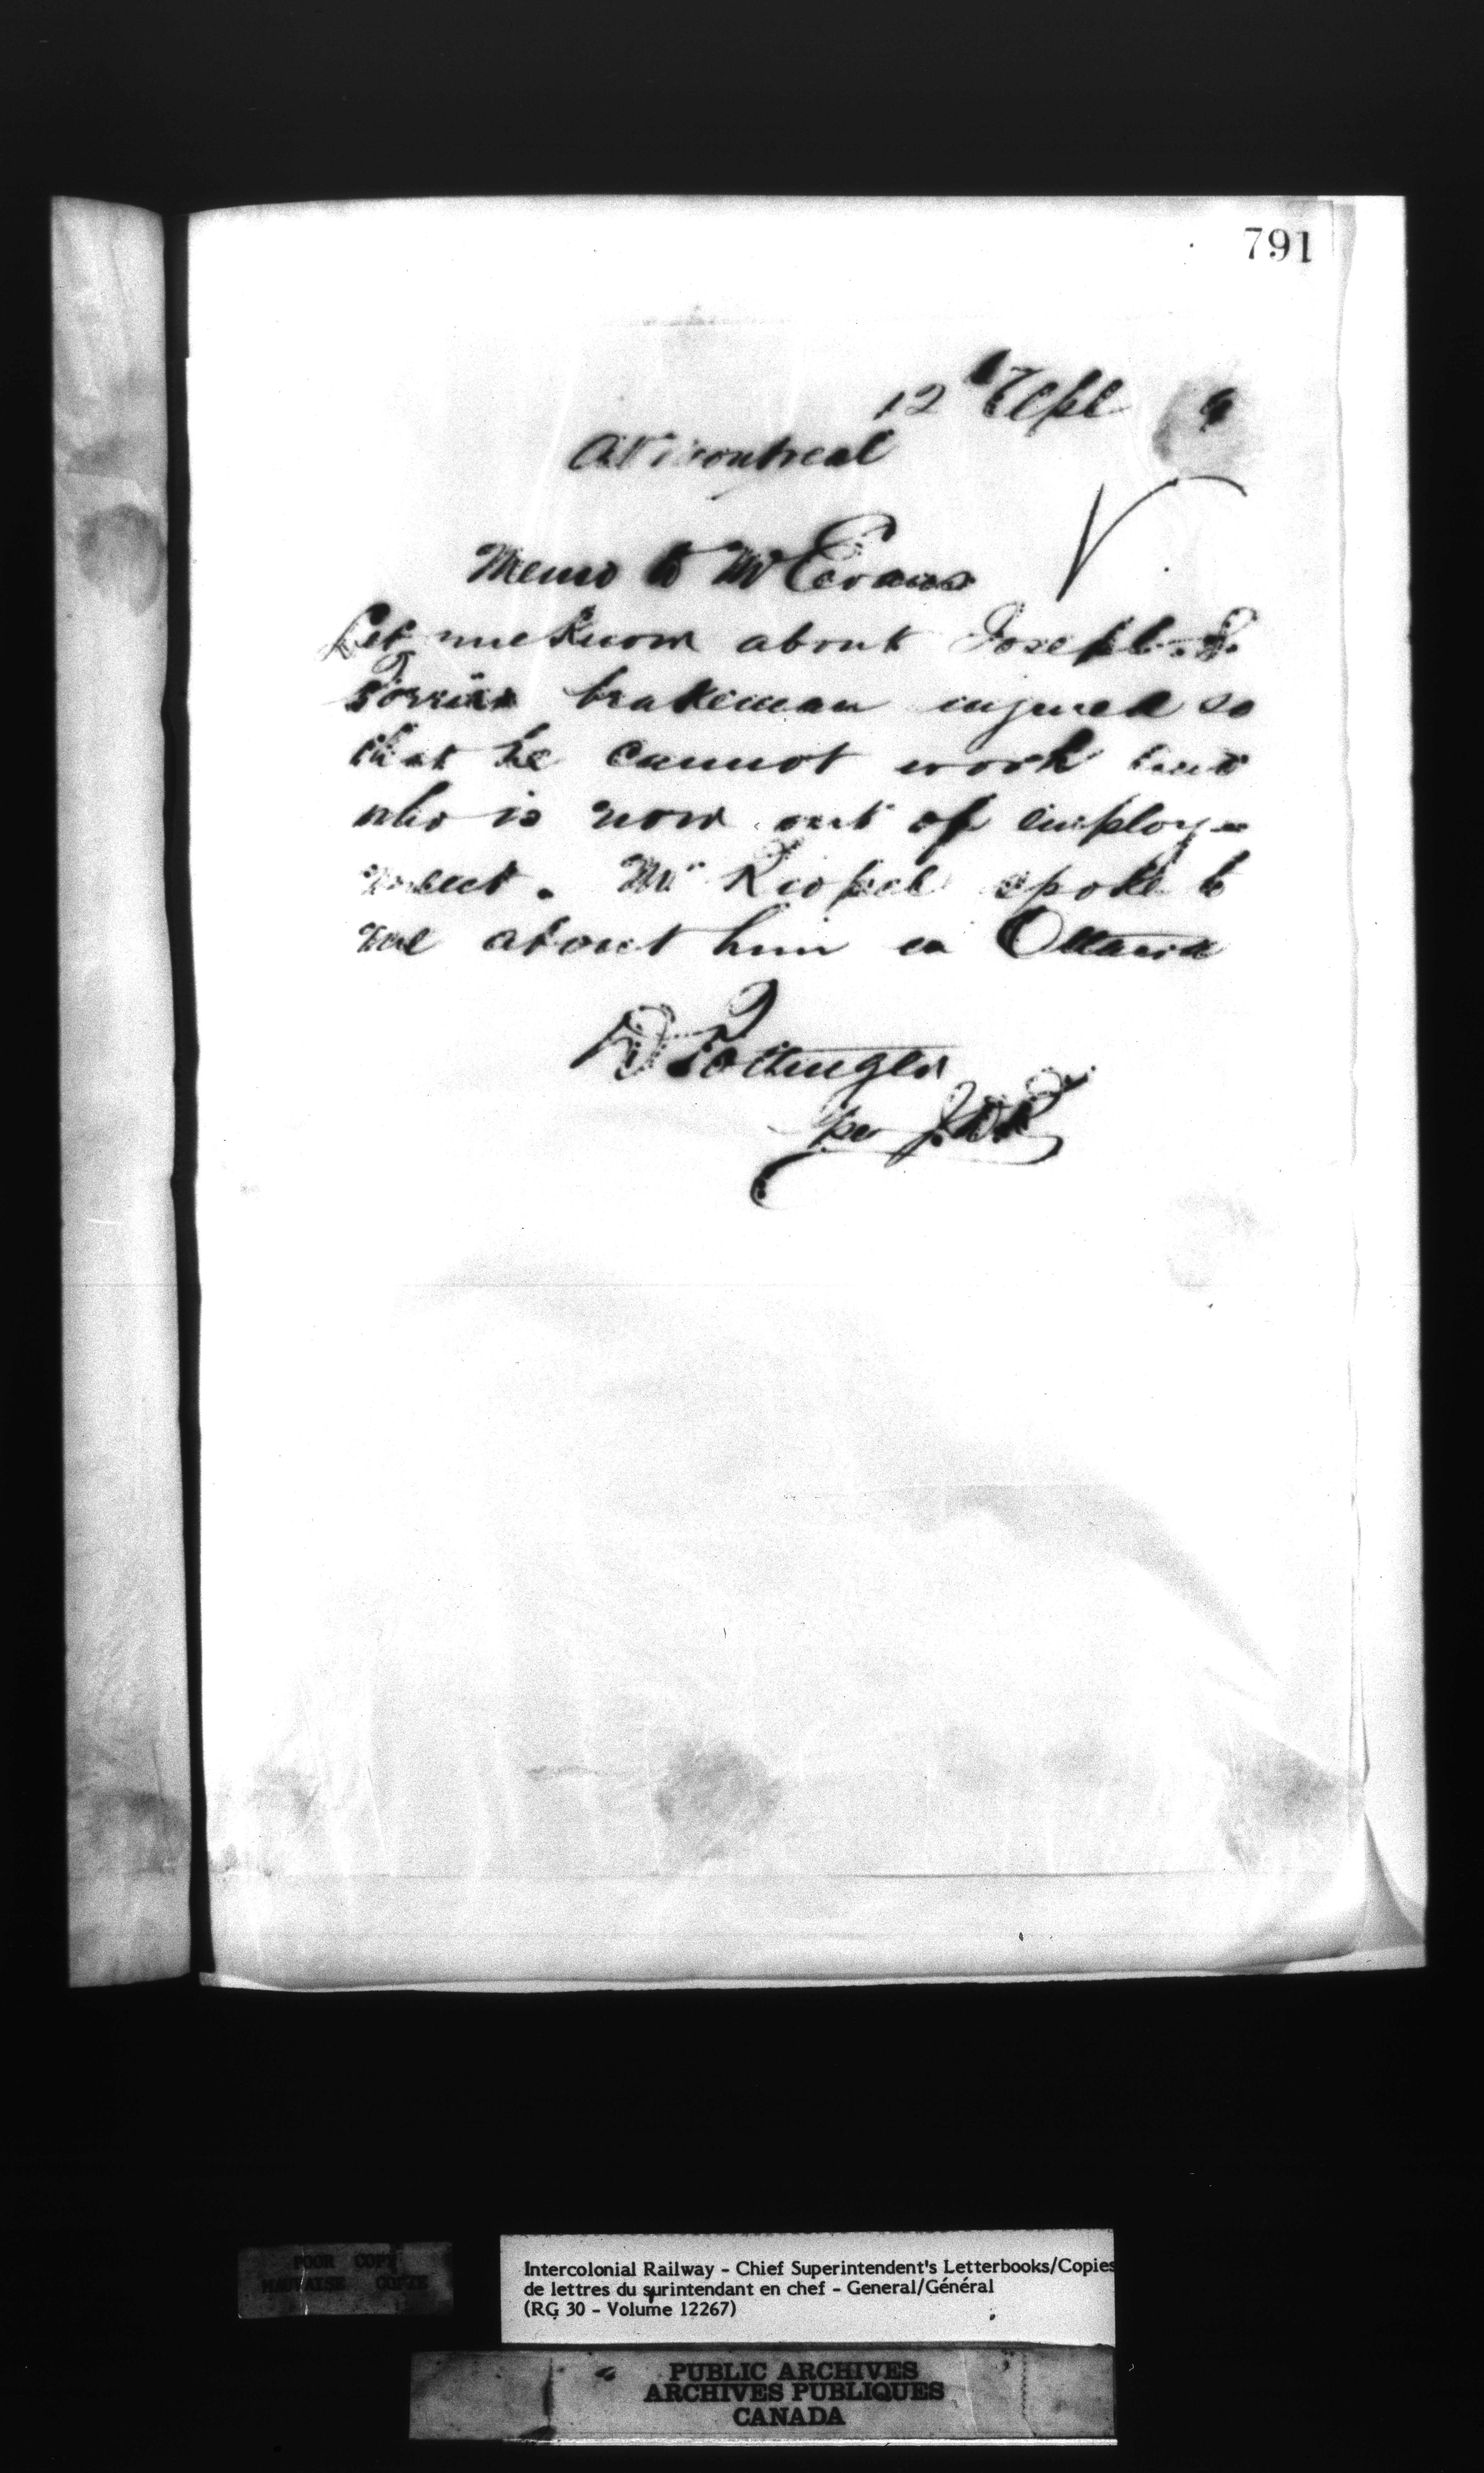 791
12th Apl 9
At Montreal
Memo to Mr Evans
Let me know about Joseph
brakeman injured so
that he cannot work and
who is now out of employ-
ment. Mr Riopel spoke to
me about him in Ottawa
D Pottinger
per
POOR COPY
MAUVAISE COPIE
Intercolonial Railway - Chief Superintendent's Letterbooks/Copies
de lettres du surintendant en chef - General/Général
(RG 30 - Volume 12267)
PUBLIC ARCHIVES
ARCHIVES PUBLIQUES
CANADA